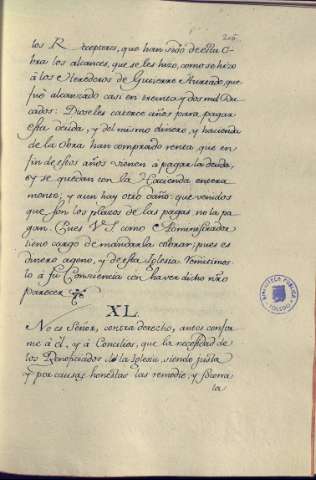 los Receptores, que han sido de esta O-
bra los alcances, que se les hizo, como se hizo
à los Herederos de Gutierre Hurtado, que
fué alcanzado casi en treinta y dos mil Du-
cados: Dioseles catorce años para pagar
esta deuda, y del mismo dinero, y hacienda
de la Obra han comprado renta que en
fin de estos años vienen à pagar la deuda,
y se quedan con la Hacienda enera
monte; y aun hay otro daño: que venidos
que son los plazos de las pagas no la pa-
gan. Pues V.S. como Administrador
tiene cargo de mandarla cobrar; pues es
dinero ageno, y de esta Iglesia. Remitimos-
lo à su Consciencia con haver dicho nro
parecer.
XL.
No es Señor, contra derecho, antes confor-
me à él, y à Concilios, que la necesidad de
los Beneficiados de la Iglesia, siendo justa
y por causas honestas las remedie, y socorra
la
BIBLIOTECA PUBLICA
TOLEDO